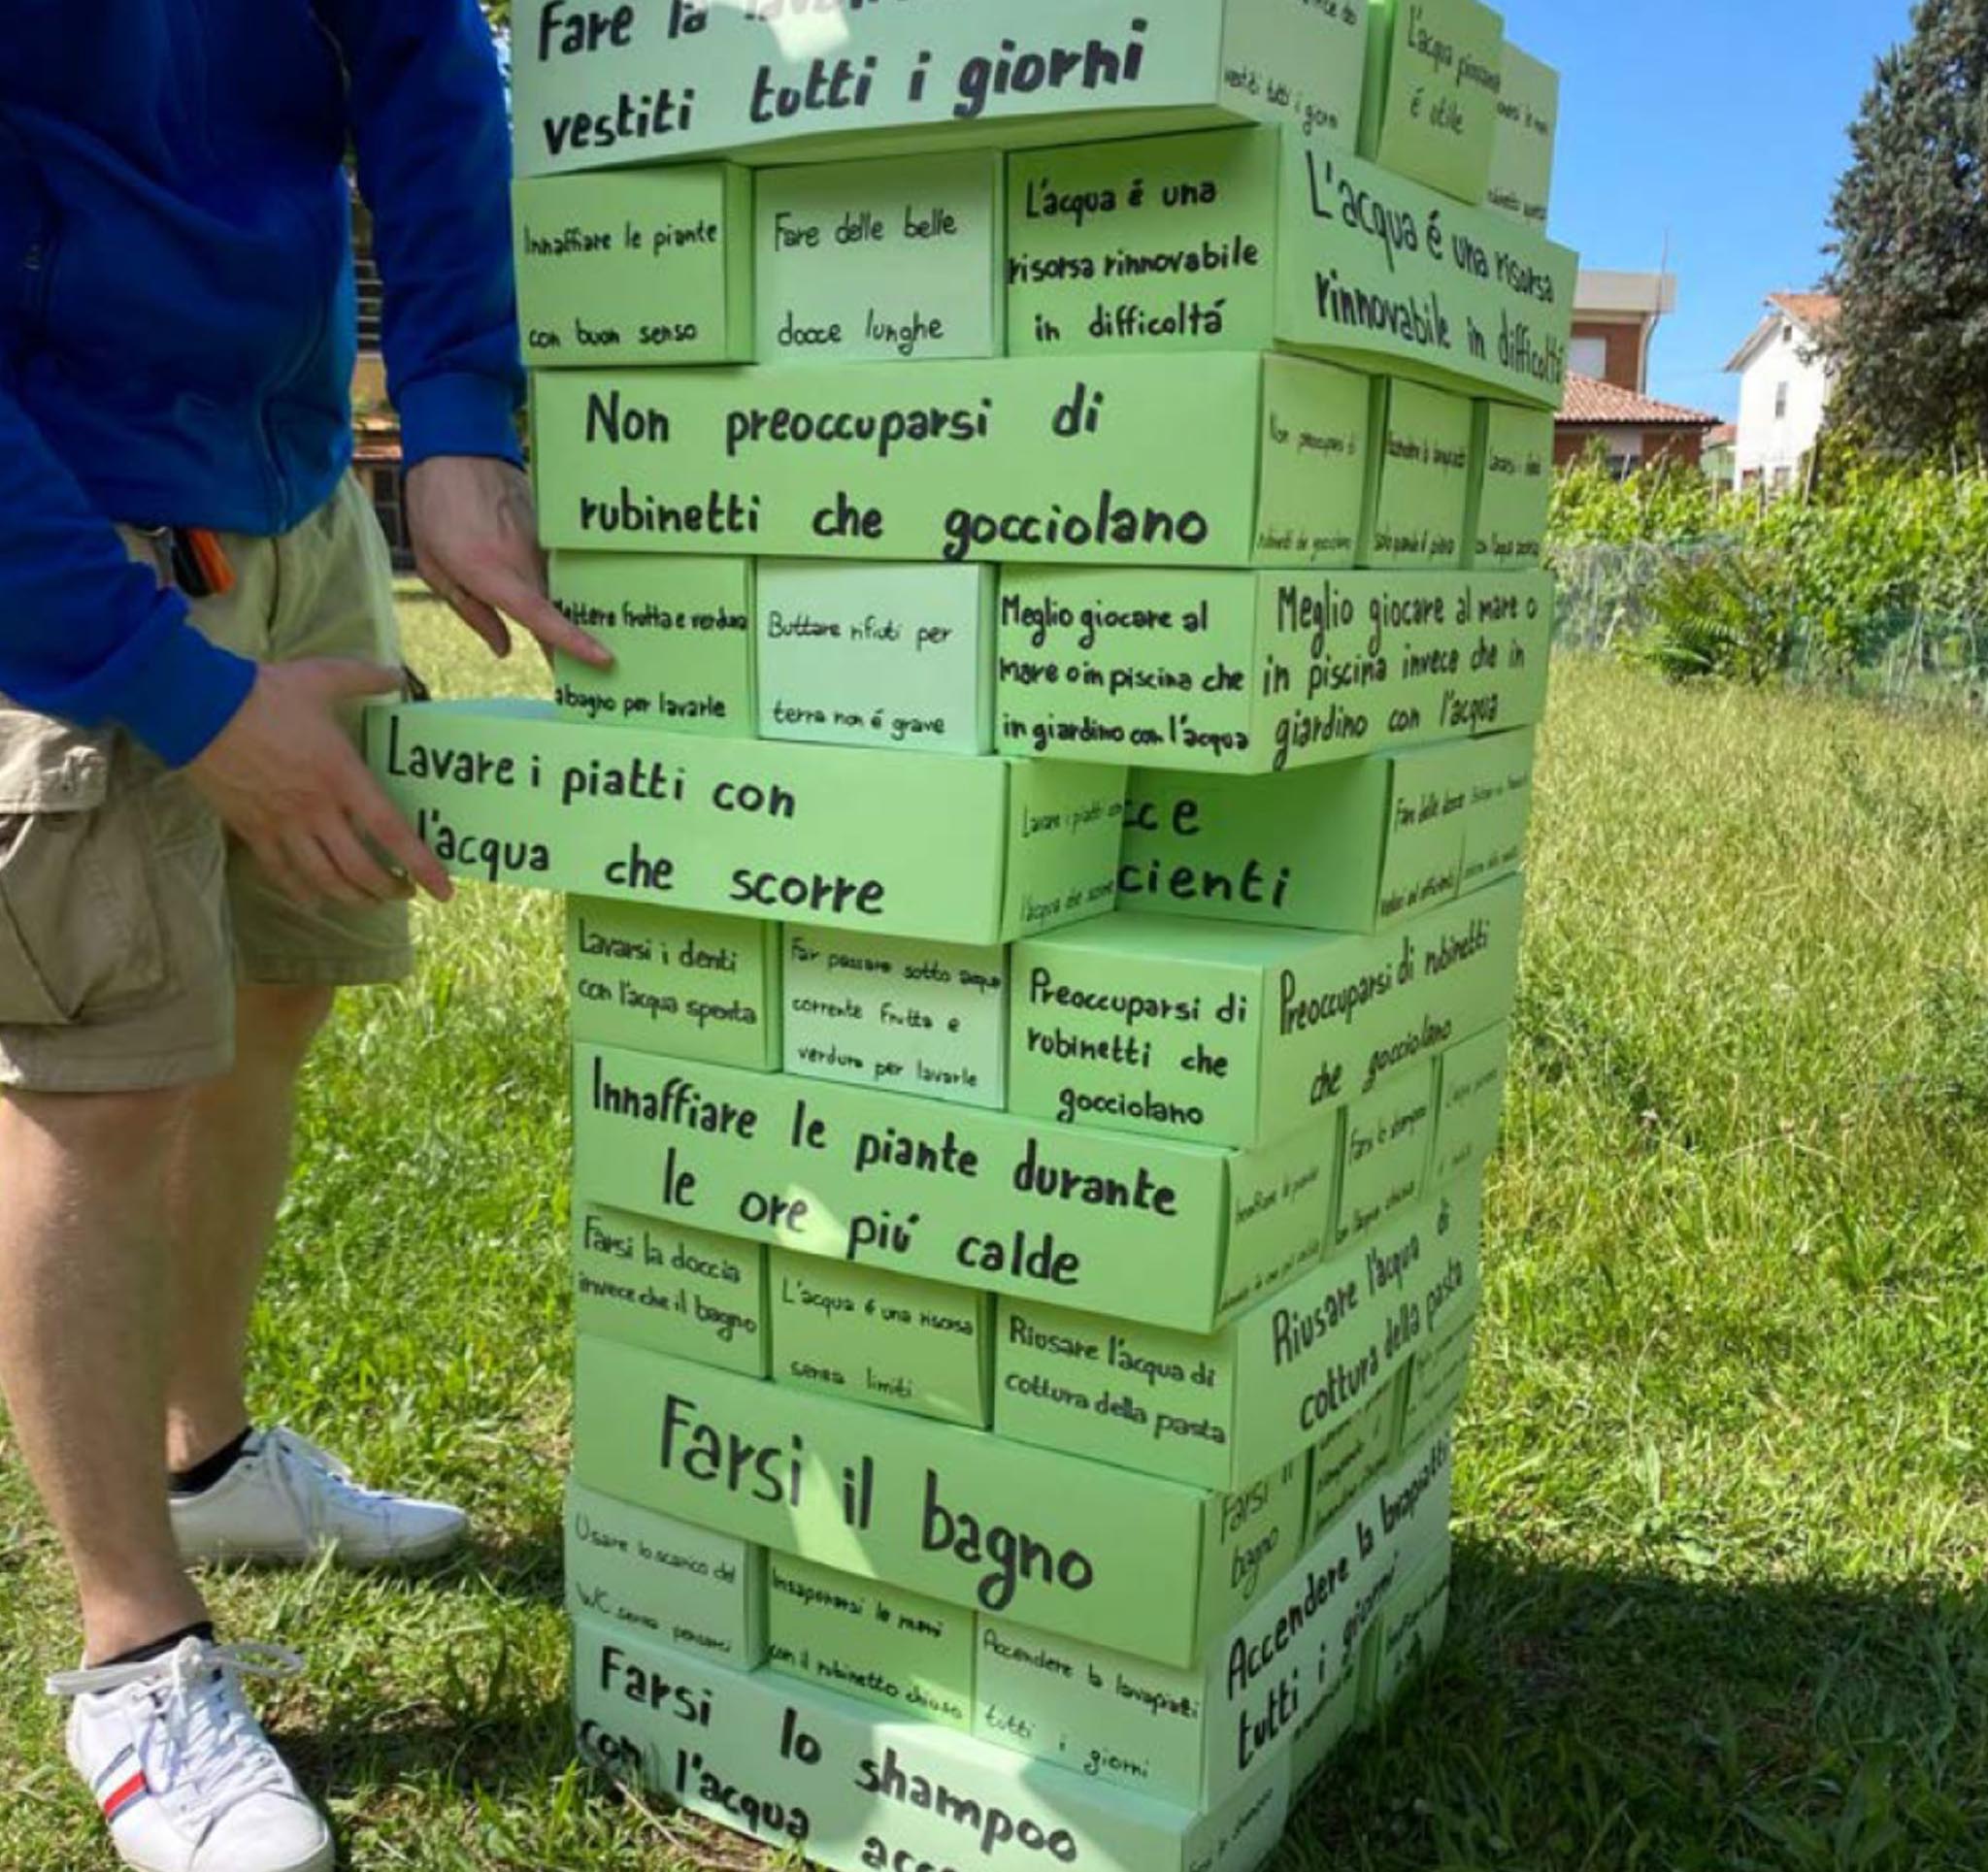 Fare la
vestiti tutti i giorni
vestiti tutti i giorni
L'acqua piovana
é utile
Innaffiare le piante
con buon senso
Fare delle belle
docce lunghe
L'acqua é una
risorsa rinnovabile
in difficoltá
L'acqua é una risorsa
rinnovabile in difficoltá
Non preoccuparsi di
rubinetti che gocciolano
Non preoccuparsi di
rubinetti che gocciolano
Mettere frutta e verdura
abagno per lavarle
Buttare rifiuti per
terra non é grave
Meglio giocare al
mare o in piscina che
in giardino con l'acqua
Meglio giocare al mare o
in piscina invece che in
giardino con l'acqua
Lavare i piatti con
l'acqua che scorre
Lavare i piatti con
l'acqua che scorre
cce
cienti
Fare delle docce
Lavarsi i denti
con l'acqua spenta
Far passare sotto acqua
corrente frutta e
verdura per lavarle
Preoccuparsi di
rubinetti che
gocciolano
Preoccuparsi di rubinetti
che gocciolano
Innaffiare le piante durante
le ore piú calde
Innaffiare le piante
Farsi lo shampoo
Farsi la doccia
invece che il bagno
L'acqua é una risorsa
senza limiti
Riusare l'acqua di
cottura della pasta
Riusare l'acqua di
cottura della pasta
Farsi il bagno
Farsi il
bagno
Usare lo scarico del
WC senza pensarci
Insaponarsi le mani
con il rubinetto chiuso
Accendere la lavapiatti
tutti i giorni
Accendere la lavapiatti
tutti i giorni
Farsi lo shampoo
con l'acqua